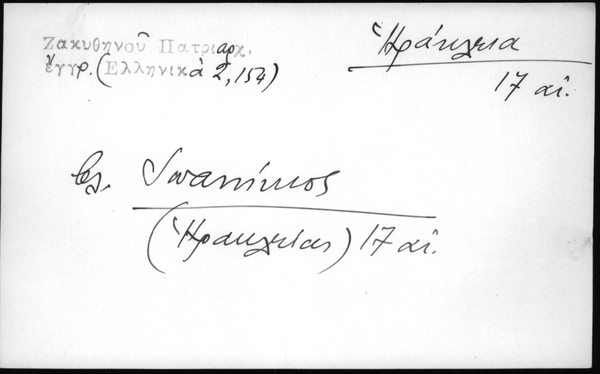 Ζακυθηνοῦ Πατριαρχ.
ἔγγρ. (Ἑλληνικὰ 2, 154)
Ἡράκλεια
17 αἰ.
βλ. Ἰωαννίκιος
(Ἡρακλείας) 17 αἰ.